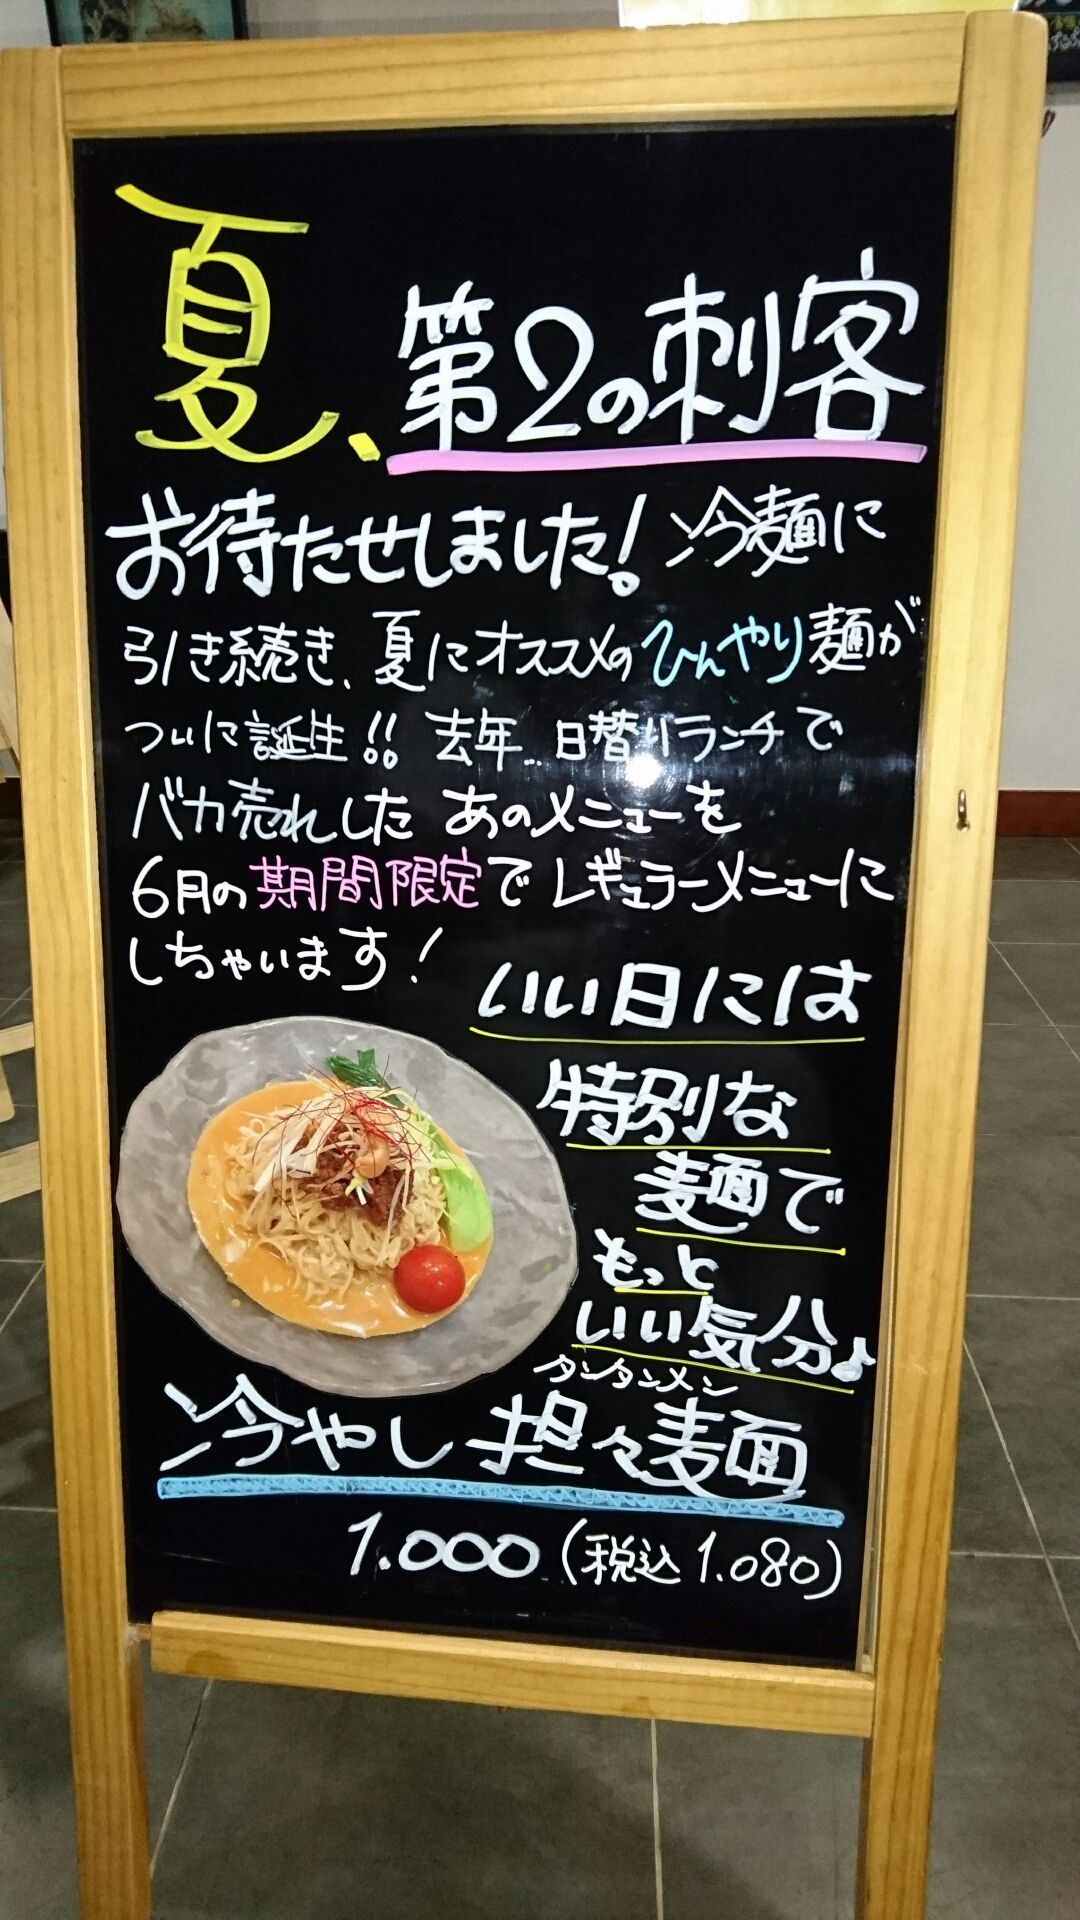 夏、第2の刺客
お待たせしました！冷麺に
引き続き、夏にオススメのひんやり麺が
ついに誕生!! 去年…日替りランチで
バカ売れした あのメニューを
6月の期間限定でレギュラーメニューに
しちゃいます！
いい日には
特別な
麺で
もっと
いい気分♪
タンタンメン
冷やし担々麺
1.000（税込1.080）